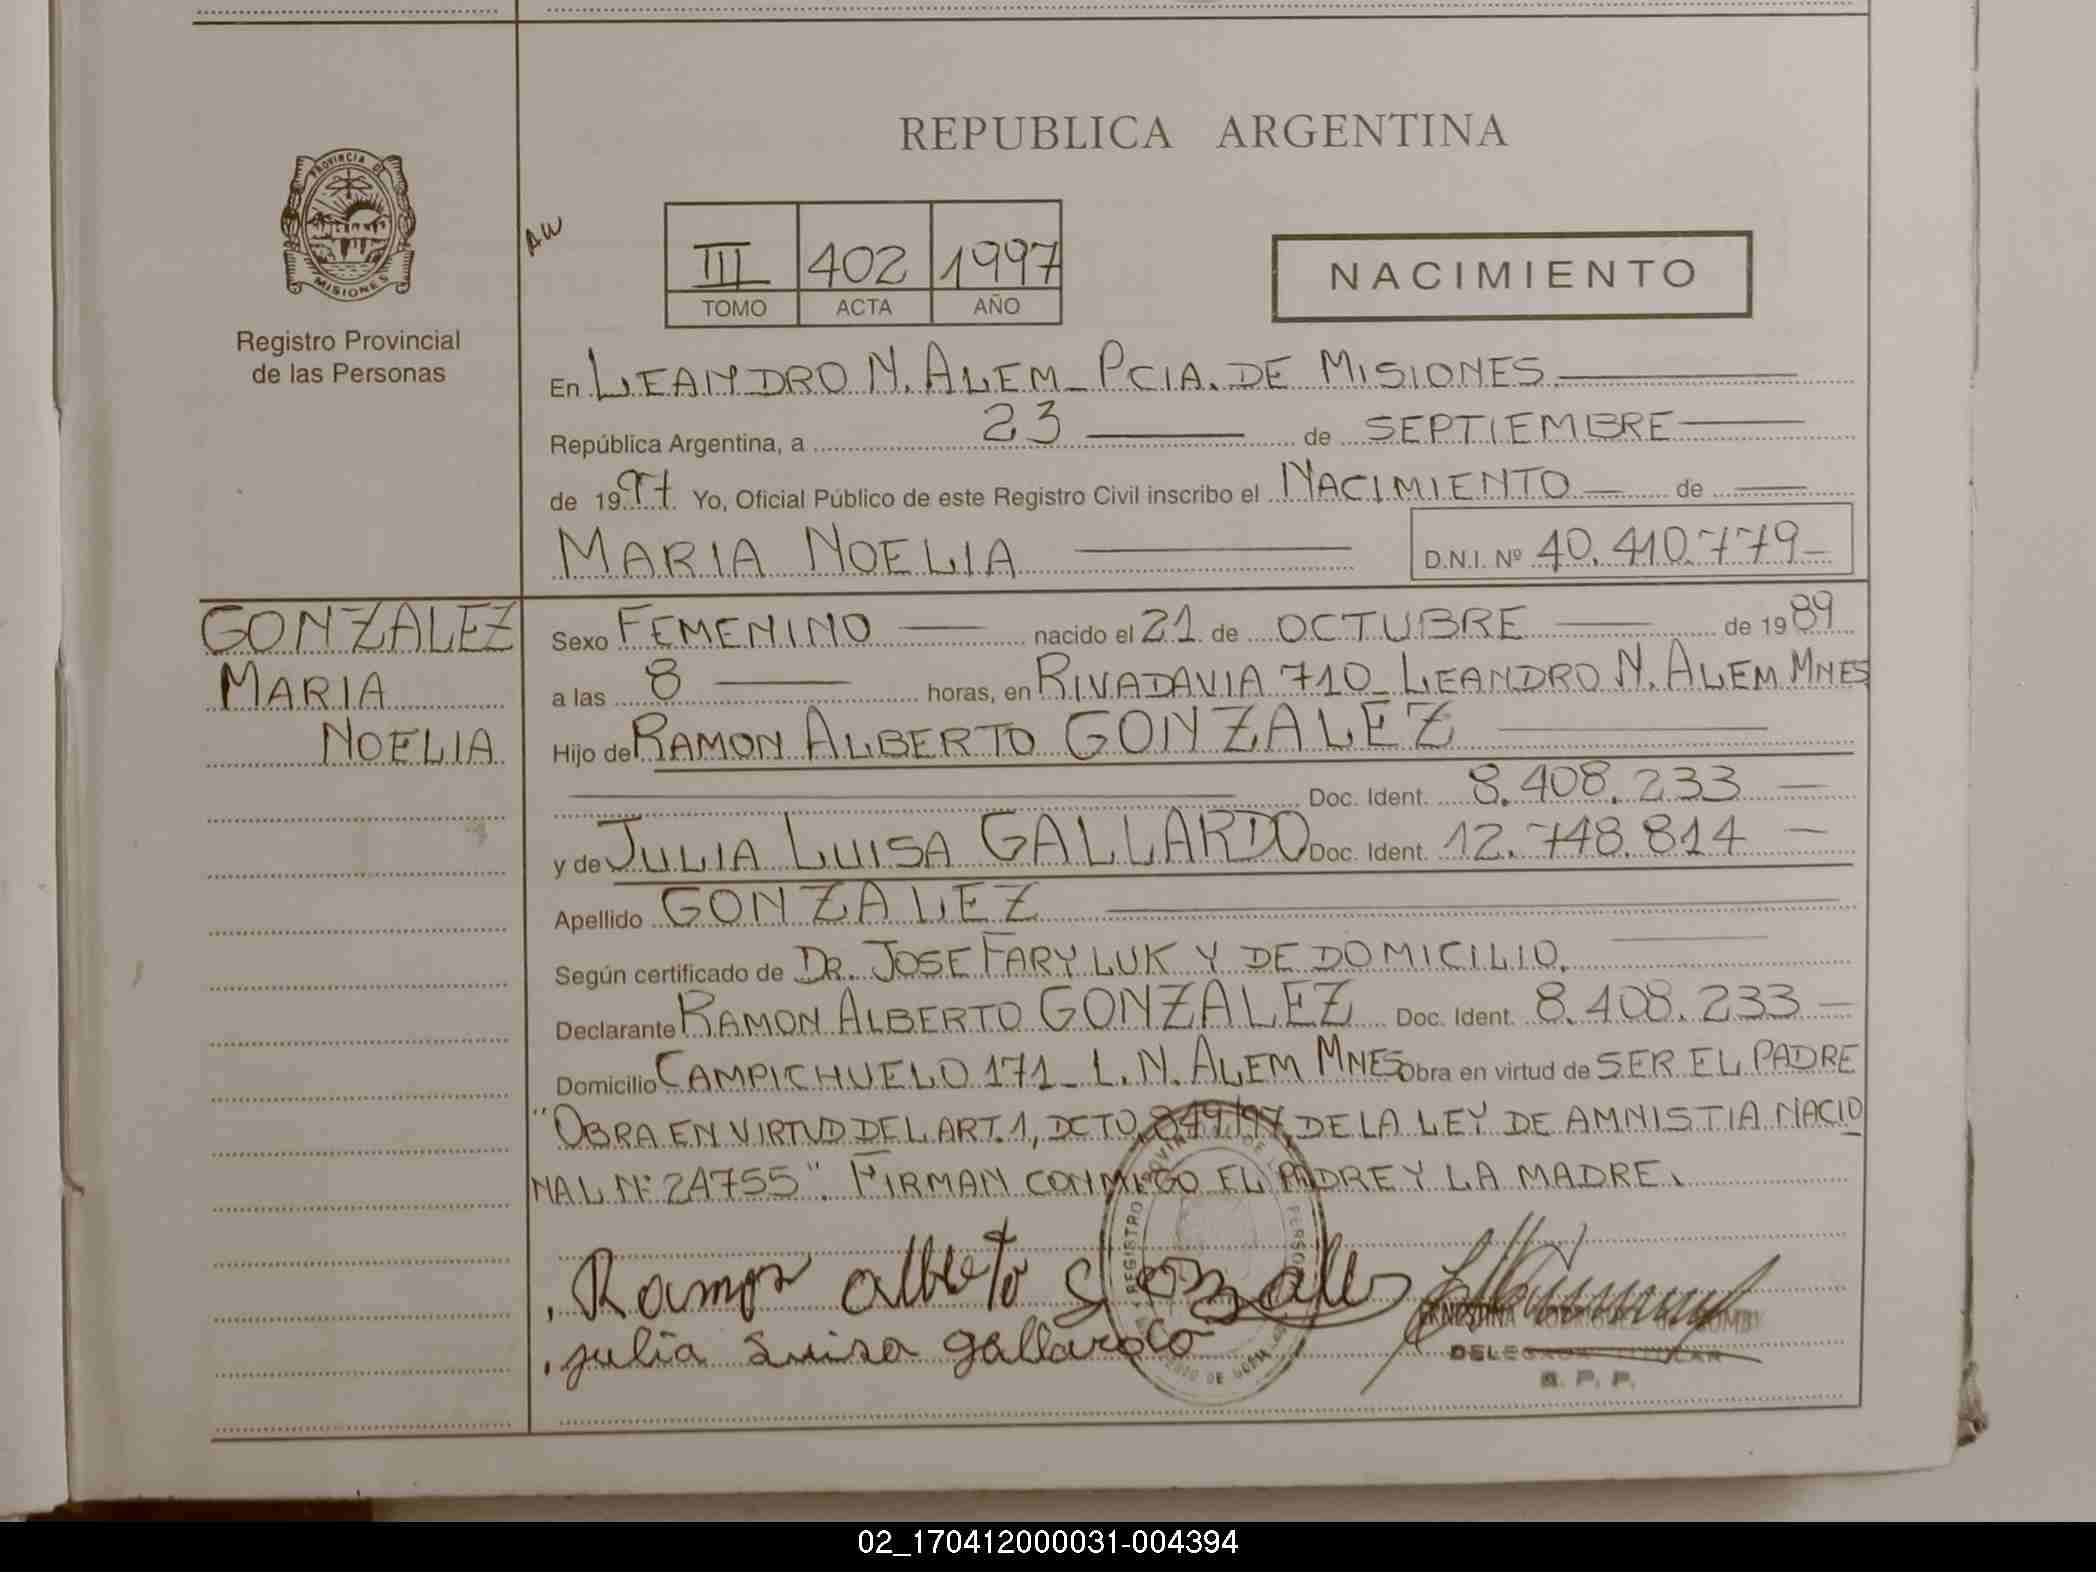 REPUBLICA ARGENTINA
PROVINCIA DE
MISIONES
Registro Provincial
de las Personas
AW
III 402 1997
TOMO ACTA AÑO
NACIMIENTO
En LEANDRO N. ALEM - PCIA. DE MISIONES
República Argentina, a 23 de SEPTIEMBRE
de 1997. Yo, Oficial Público de este Registro Civil inscribo el NACIMIENTO de
MARIA NOELIA D.N.I. Nº 40.410.779-
GONZALEZ
MARIA
NOELIA
Sexo FEMENINO nacido el 21 de OCTUBRE de 1989
a las 8 horas, en RIVADAVIA 710_LEANDRO N. ALEM MNES
Hijo de RAMON ALBERTO GONZALEZ
Doc. Ident. 8.408.233
y de JULIA LUISA GALLARDO Doc. Ident. 12.748.814
Apellido GONZALEZ
Según certificado de DR. JOSE FARYLUK Y DE DOMICILIO.
Declarante RAMON ALBERTO GONZALEZ Doc. Ident. 8.408.233
Domicilio CAMPICHUELO 171_L.N. ALEM MNES Obra en virtud de SER EL PADRE
"OBRA EN VIRTUD DEL ART. 1, DCTO. 849/97, DE LA LEY DE AMNISTIA NACIO
NAL Nº 24755". FIRMAN CONMIGO EL PADRE Y LA MADRE.
Ramon alberto Gonzalez
julia Luisa gallardo
REGISTRO
DELEGADA TITULAR
R. P. P.
02_170412000031-004394